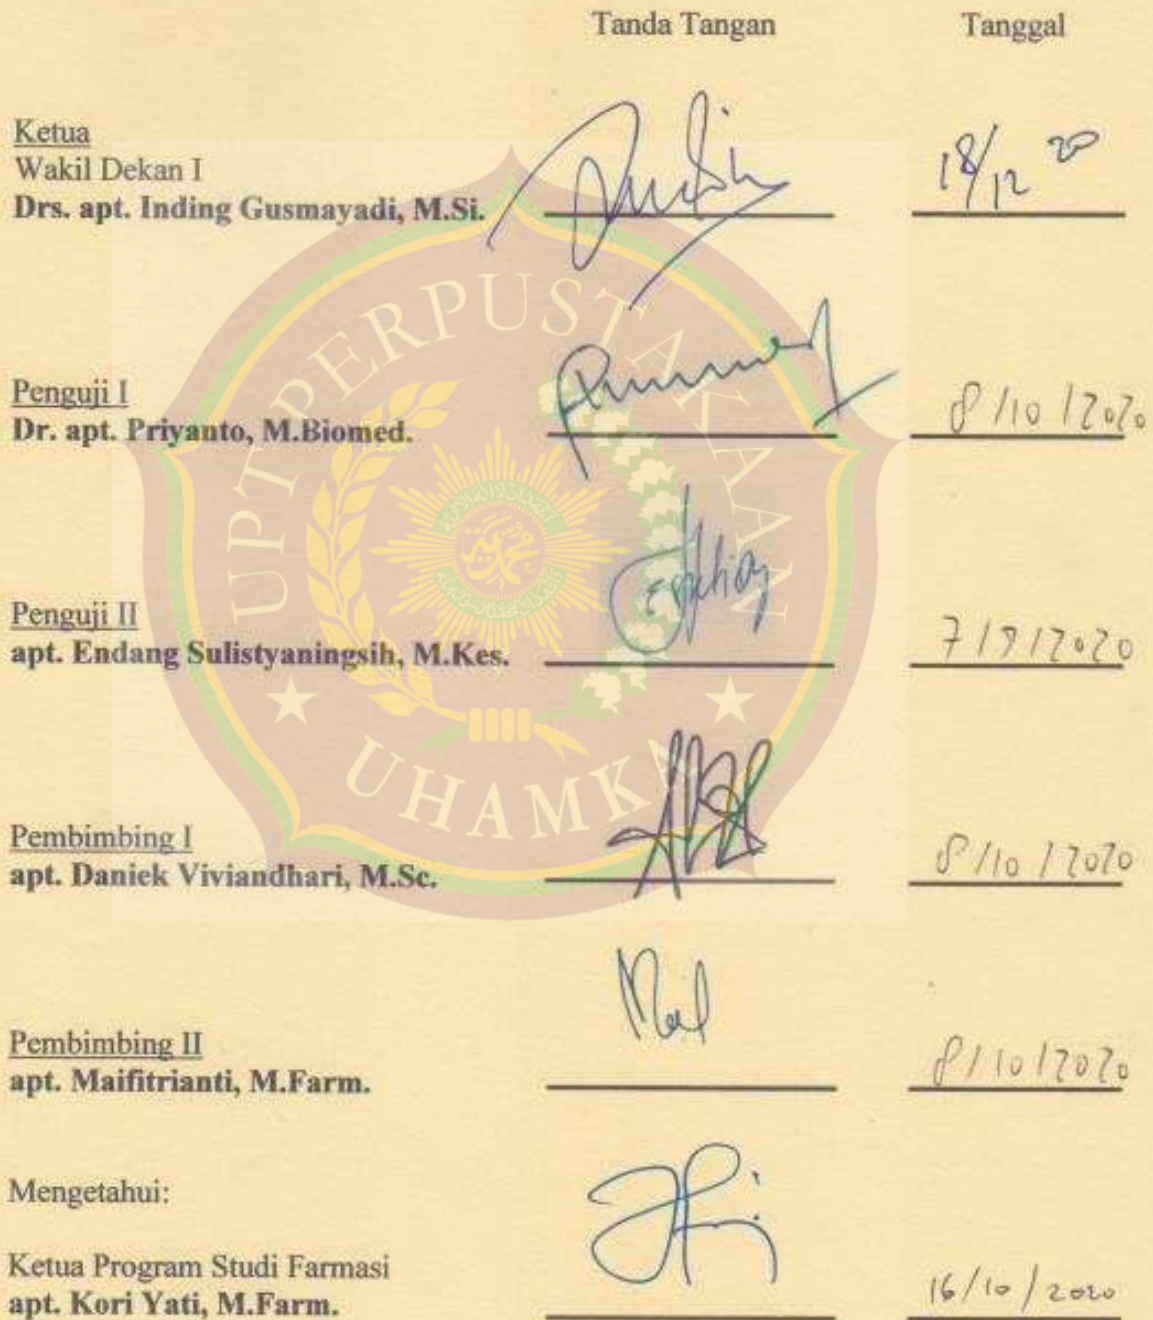 Tanda Tangan Tanggal
Ketua
Wakil Dekan I
Drs. apt. Inding Gusmayadi, M.Si. 18/12 20
Penguji I
Dr. apt. Priyanto, M.Biomed. 8/10/2020
Penguji II
apt. Endang Sulistyaningsih, M.Kes. 7/9/2020
Pembimbing I
apt. Daniek Viviandhari, M.Sc. 8/10/2020
Pembimbing II
apt. Maifitrianti, M.Farm. 8/10/2020
Mengetahui:
Ketua Program Studi Farmasi
apt. Kori Yati, M.Farm. 16/10/2020
UPT PERPUSTAKAAN
UHAMKA